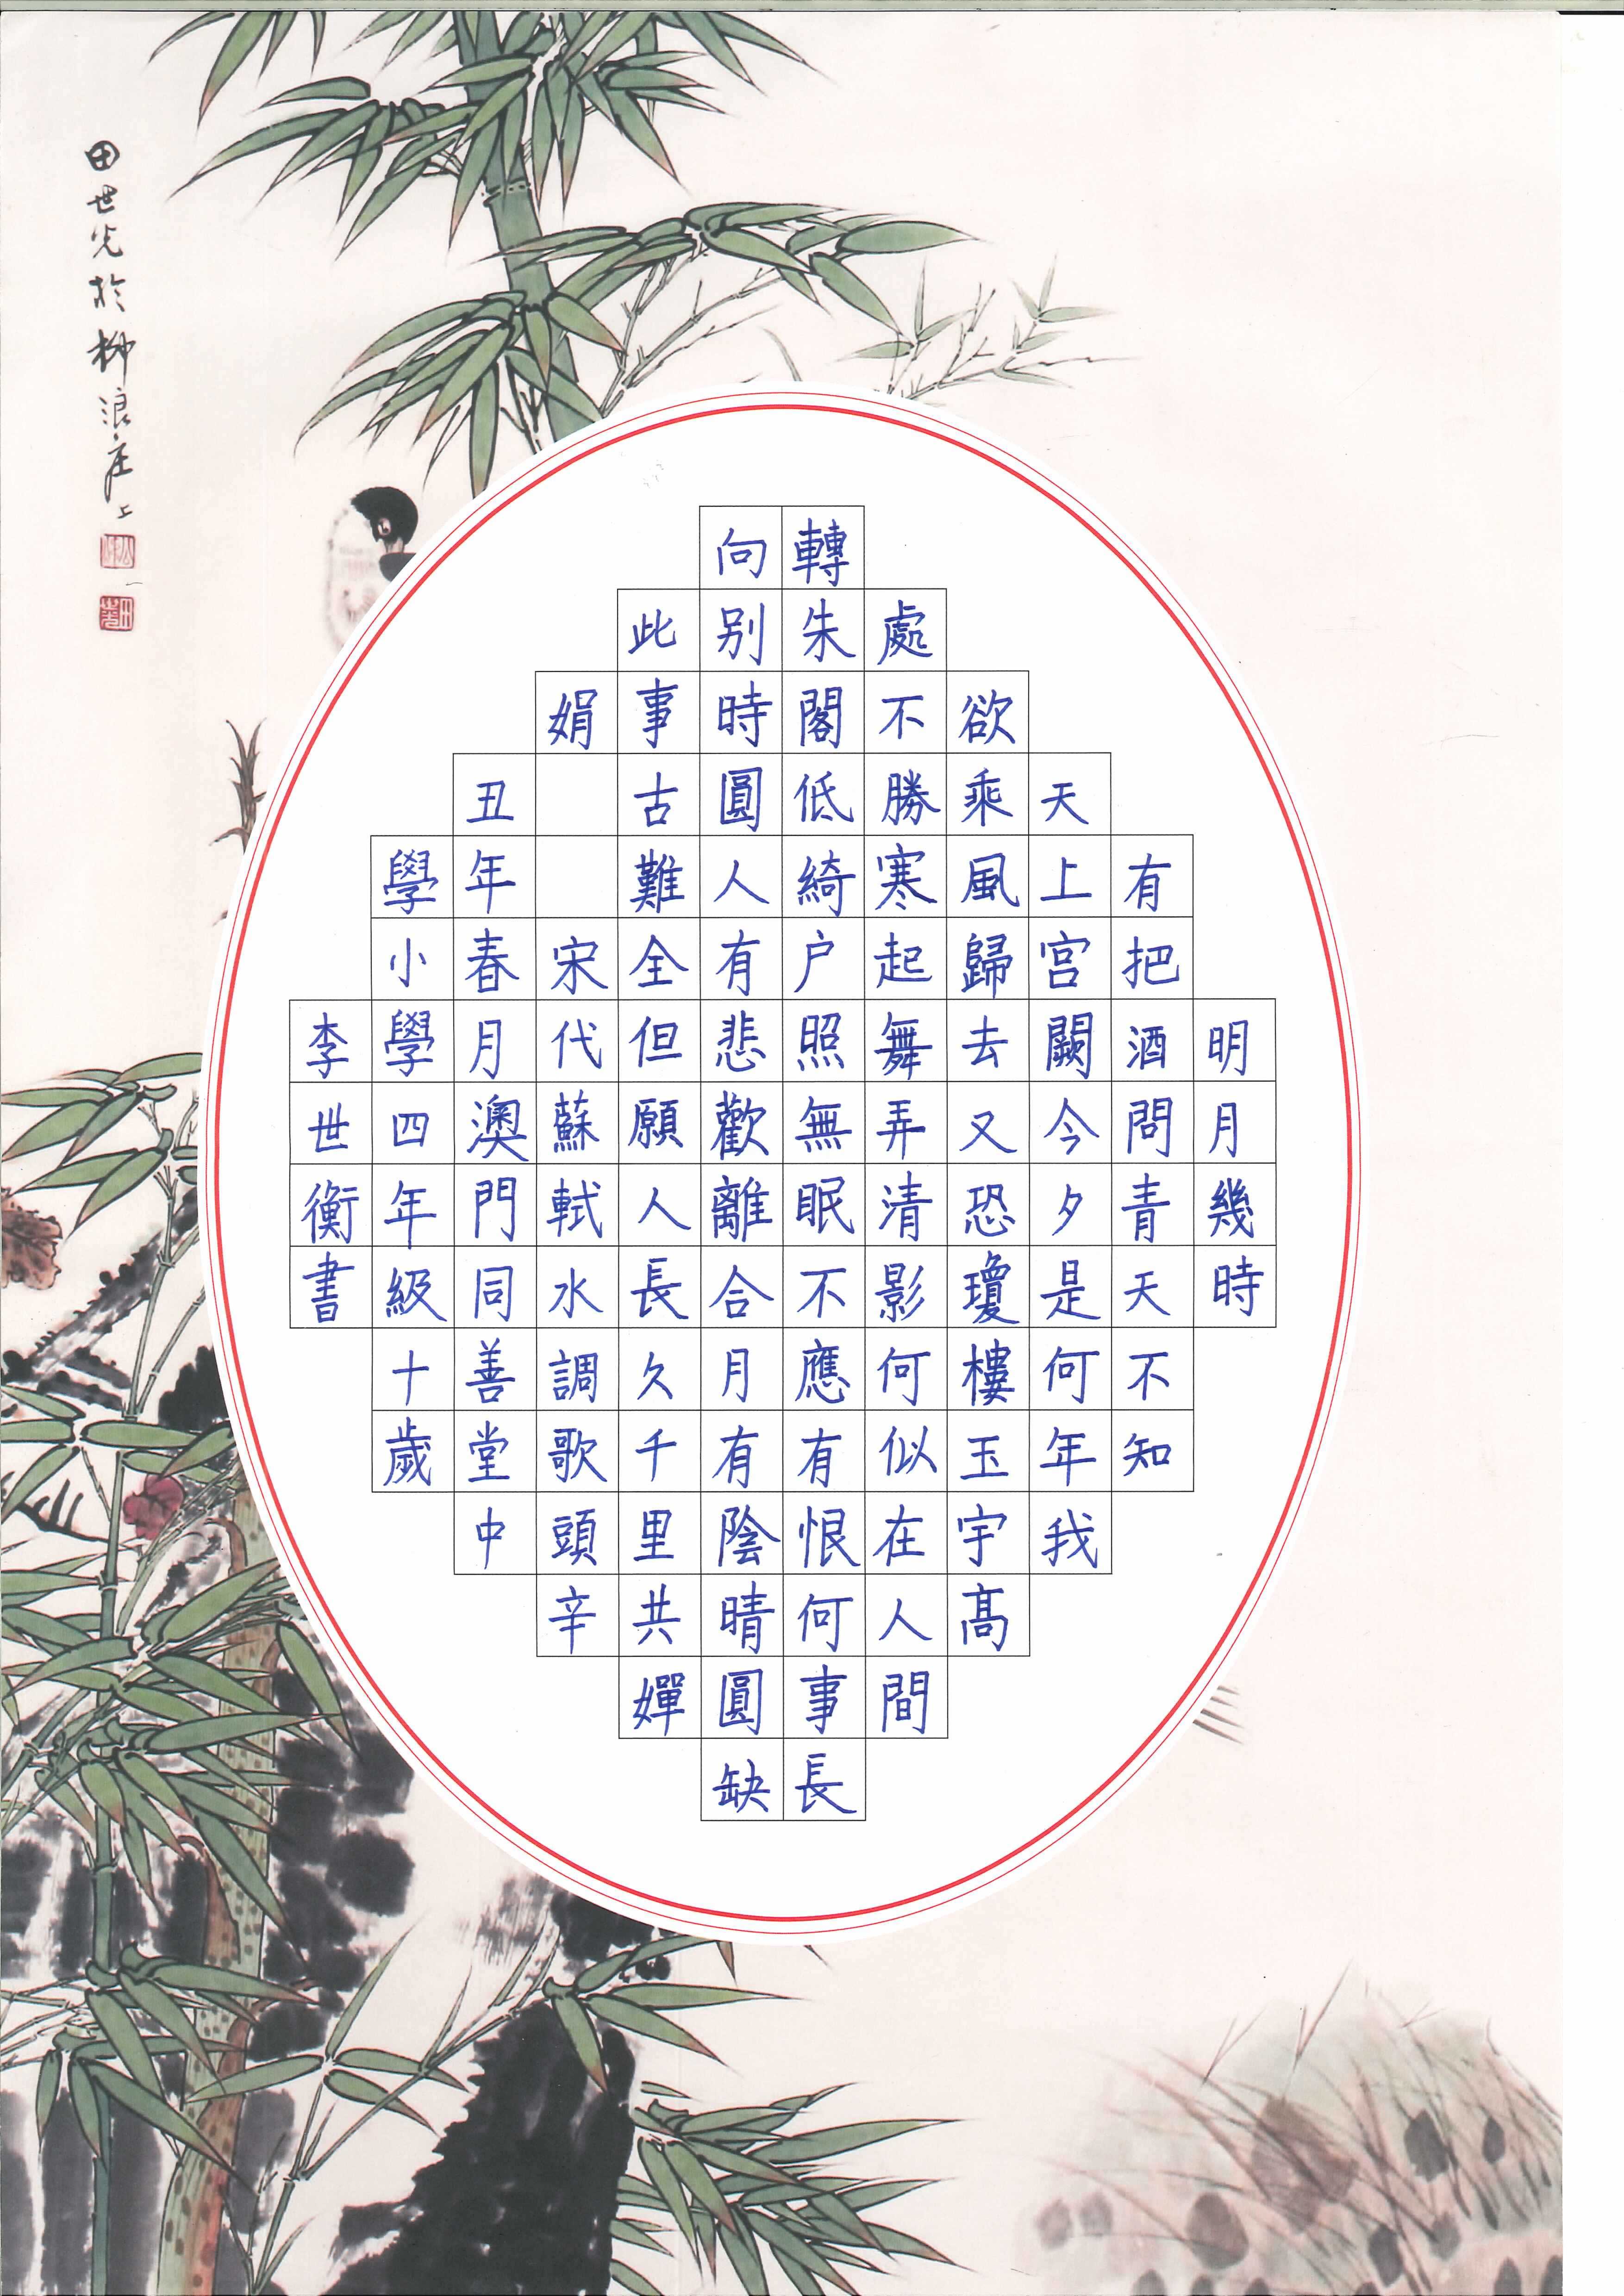 明月幾時
有把酒問青天不知
天上宫闕今夕是何年我
欲乘風歸去又恐瓊樓玉宇髙
處不勝寒起舞弄清影何似在人間
轉朱閣低綺户照無眠不應有恨何事長
向别時圓人有悲歡離合月有陰晴圓缺
此事古難全但願人長久千里共嬋
娟 宋代蘇軾水調歌頭辛
丑年春月澳門同善堂中
學小學四年級十歲
李世衡書
田世光於柳浪庄上